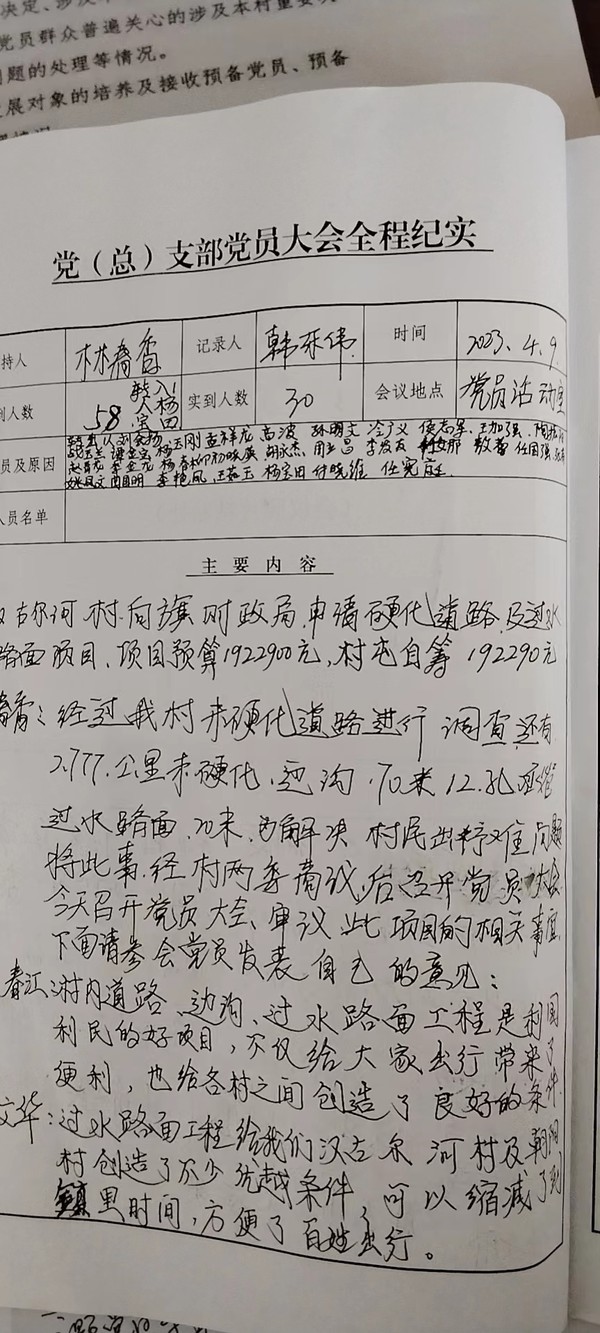 决定、涉及
党员群众普遍关心的涉及本村重要
问题的处理等情况。
展对象的培养及接收预备党员、预备
党（总）支部党员大会全程纪实
持人 林 香 记录人 韩 伟 时间 2023.4.9
到人数 58 转入1人杨宝田 实到人数 30 会议地点 党员活动室
员及原因
杨玉刚 孟祥龙 高波 孙明文 王加强
李金龙 杨春柳 胡永杰 周玉昌 李发友 任国强
李艳凤 王茹玉 杨宝田 付晓维 任宪庭
人员名单
主要内容
汉古尔河村向旗财政局申请硬化道路及过水
路面项目、项目预算1922900元，村屯自筹192290元
香：经过我村未硬化道路进行调查还有
2.777公里未硬化、边沟70米
过水路面70米，为解决村民出行难问题
将此事经村两委商议后召开党员大会
今天召开党员大会、审议此项目的相关事宜
下面请参会党员发表自己的意见：
春江：村内道路、边沟、过水路面工程是利国
利民的好项目，不仅给大家出行带来了
便利，也给各村之间创造了良好的条件
文华：过水路面工程给我们汉古尔河村及朝阳
村创造了不少优越条件，可以缩减了到
镇里时间，方便了百姓出行。